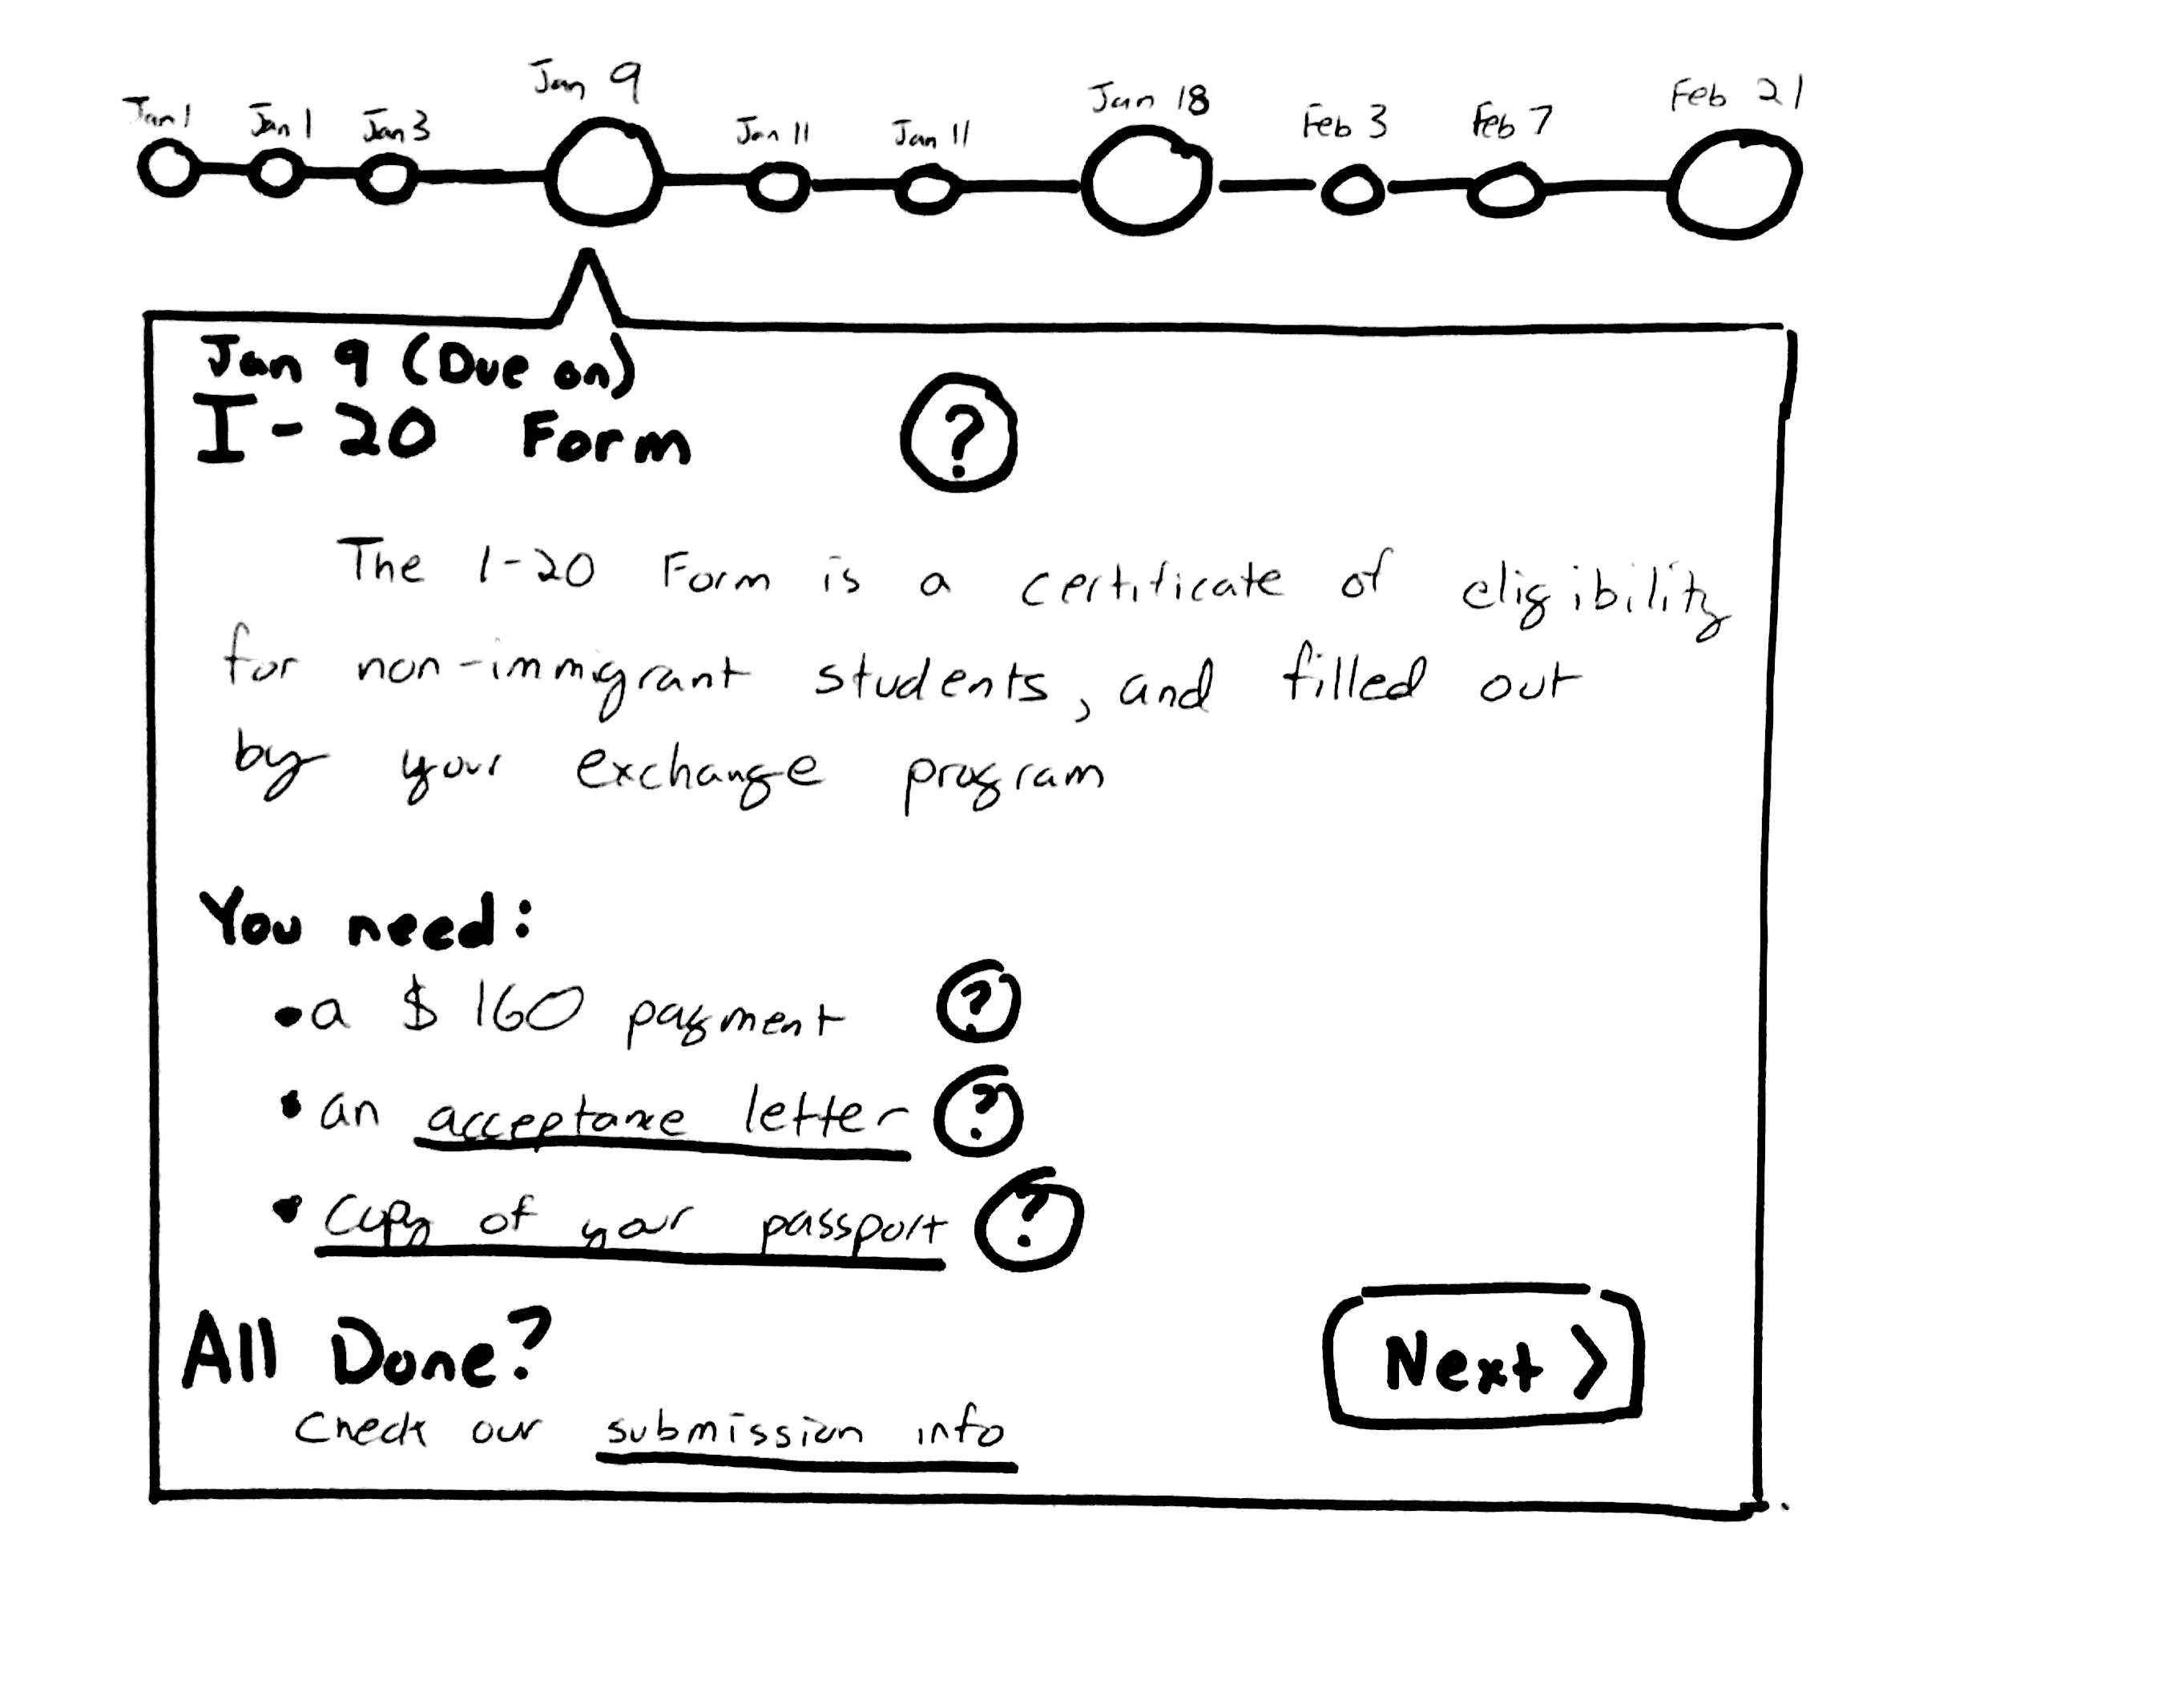 Jan 1 Jan 1 Jan 3 Jan 9 Jan 11 Jan 11 Jan 18 Feb 3 Feb 7 Feb 21
Jan 9 (Due on)
I-20 Form ?
The I-20 Form is a certificate of eligibility
for non-immigrant students, and filled out
by your exchange program
You need:
• a $160 payment ?
• an acceptance letter ?
• copy of your passport ?
All Done?
Next >
Check our submission info